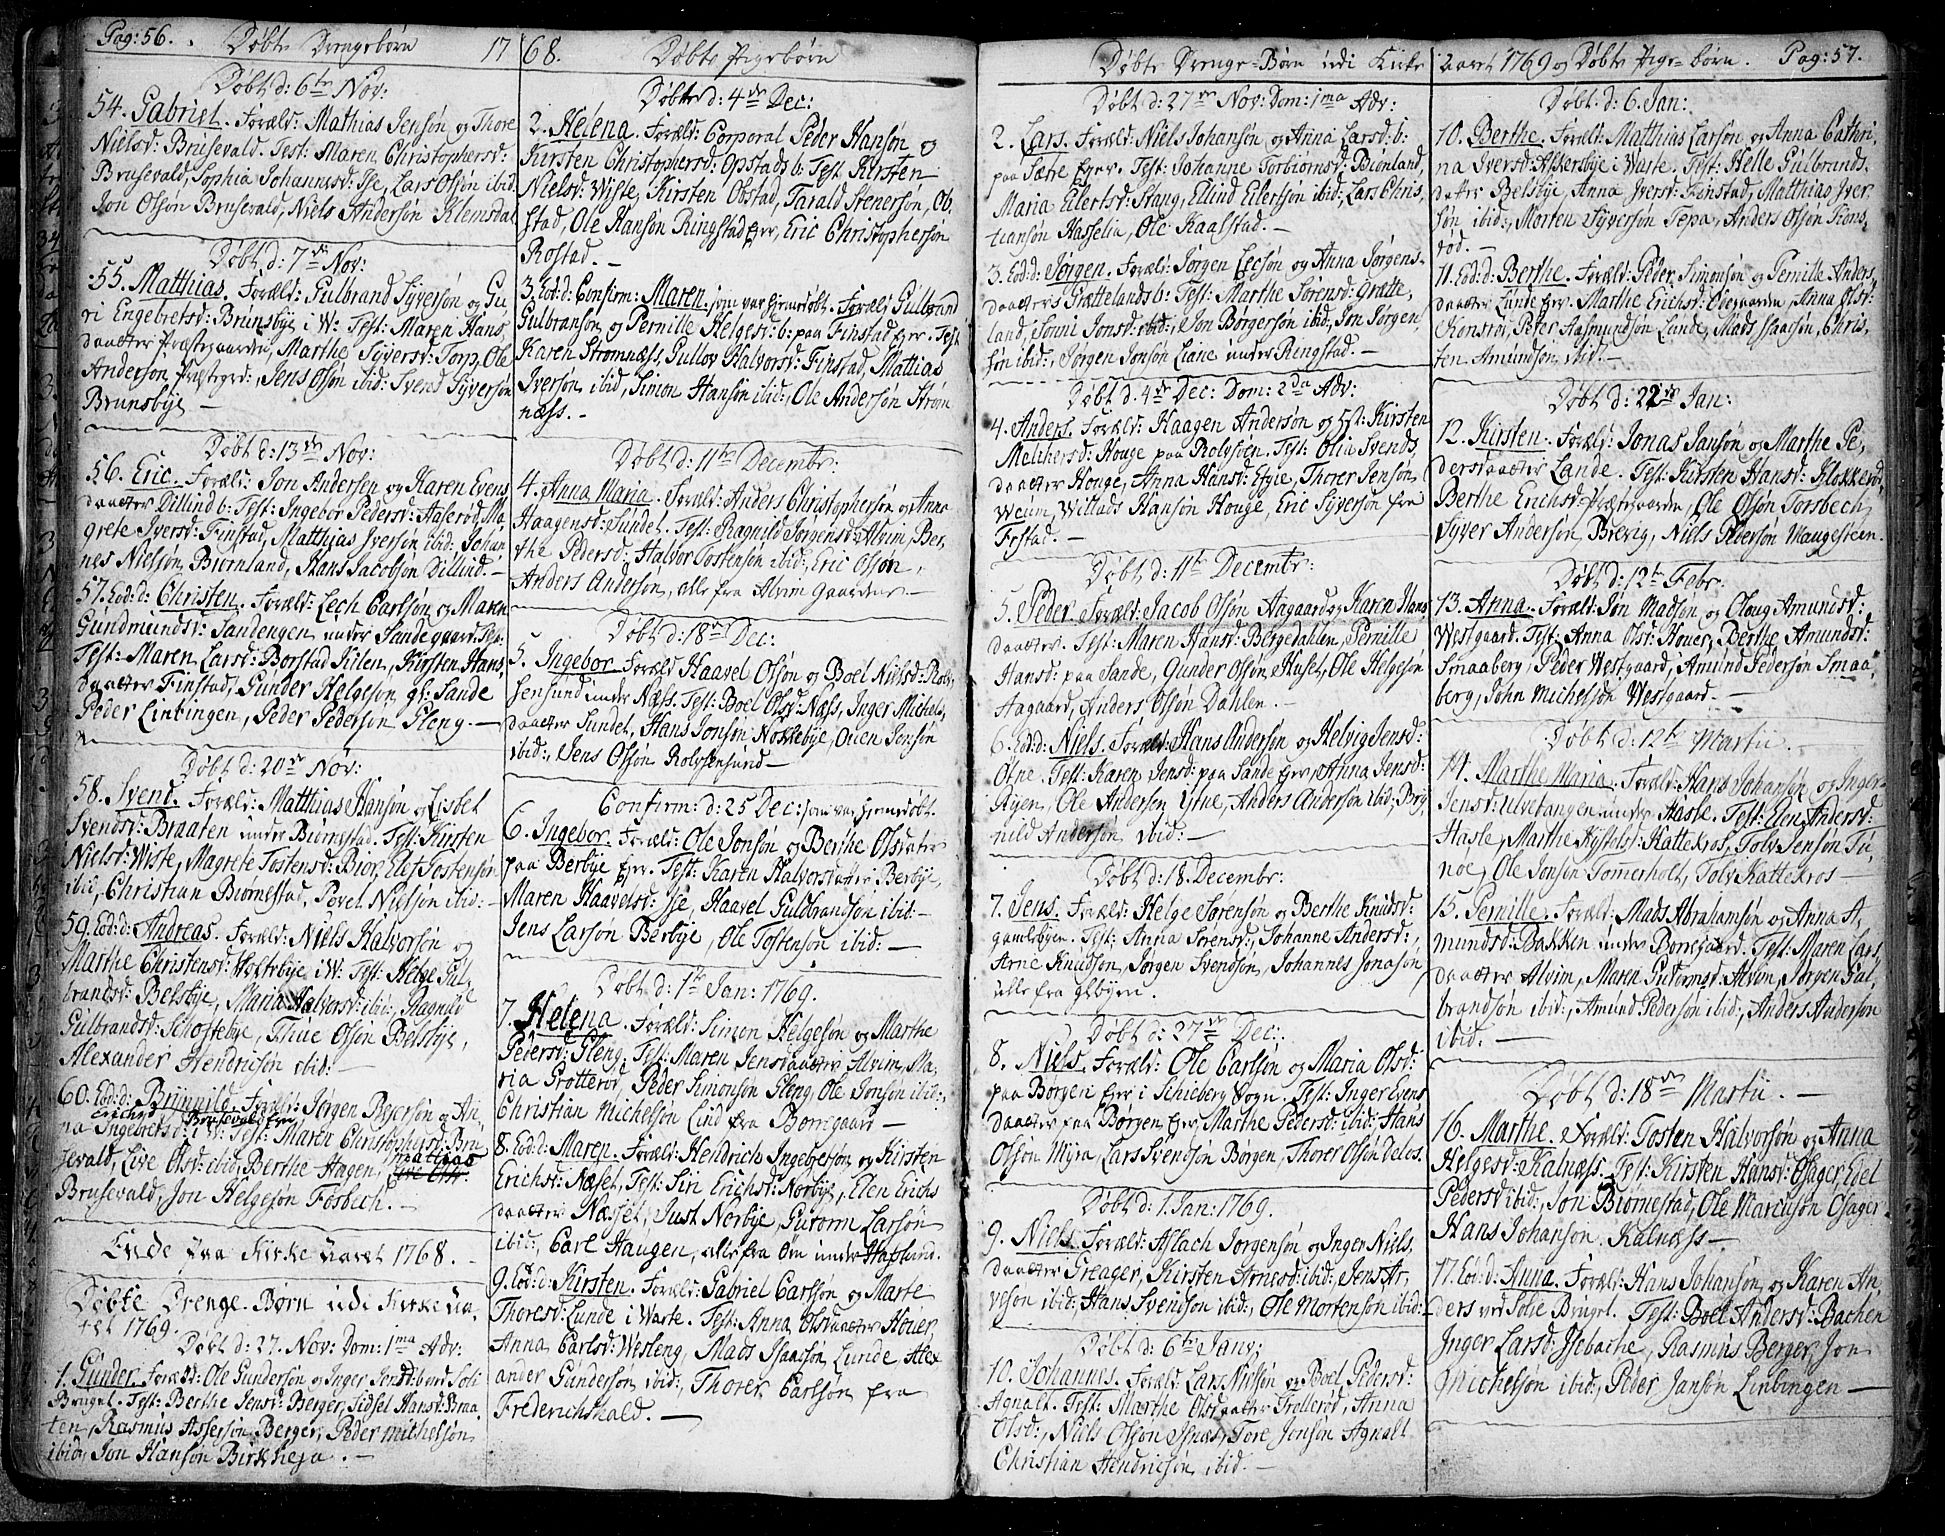 Pag: 56. Døbte Drengebørn 17
Døbt d: 6te Nov:
54. Gabriel. Foræld: Mathias Jensøn og Thore
Nielsd: Brusevald. Test: Maren Christophersd:
Brusevald, Sophia Johannesd: Ise, Lars Olsøn ibid:
Jon Olsøn Brusevald, Niels Andersøn Klemsdal
Døbt d: 7de Nov:
55. Matthias. Foræld: Gulbrand Syversøn og Gu-
ri Engebretsd: Brunsbye i W: Test: Maren Hans,
daatter Præstegaarden, Marthe Syversd: Torp, Ole
Andersøn Præstegrd:, Jens Olsøn ibid: Svend Syversøn
Brunsbye —
Døbt d: 13de Nov:
56. Eric. Foræld: Jon Andersen og Karen Evens
daatter Dillund b: Test: Ingebor Pedersd: Aaserød, Ma,
grete Iversd: Finstad, Matthias Iversøn ibid: Johan
nes Nielsøn, Biørnland, Hans Jacobsøn Dillund. —
57. Eod: d: Christen. Foræld: Lech Carlsøn og Maren
Gundmundsd: Sandengen under Sande gaard
Test: Maren Larsd: Borstad Kilen, Kirsten Hans,
daatter Finstad, Gunder Helgesøn gl: Sande
Peder Linbingen, Peder Pedersøn Gleng. —
Døbt d: 20de Nov:
58. Svend. Foræld: Matthias Hansøn og Lisbet
Svendsd: Braaten under Biørnstad. Test: Kirsten
Nielsd: Wiste, Magrete Tostensd: Biør, Elef Tostensøn
ibid, Christian Biørnestad, Povel Nielsøn ibid: —
59. Eod: d: Andreas. Foræld: Niels Halvorsøn og
Marthe Christensd: i W: Test: Helge Gul,
brandsd: Belsbye, Maria Halvorsd: ibid:, Ragnild
Gulbrandsd: Schostebye, Thue Olsøn Belsbye,
Alexander Hendricsøn ibid: —
60. Eod: d: Brynnild. Foræld: Jørgen Bejersøn og An-
na Ingebretsd: i W: Test: Maren Christophersd: Bru
sevald, Live Olsd: ibid, Berthe Hagen, Mattias
Brusevald, Jon Helgesøn Fosbech. —
Ende fra Kirke Aaret 1768. —
Døbte Drenge-Børn udi Kirke Aa-
ret 1769.
Døbt d: 27. Nov: Dom: 1ma Adv:
1. Gunder. Foræld: Ole Gundersøn og Inger Jensd: bord Soli
Bruget. Test: Berthe Jensd: Berger, Sidsel Hansd: Braa-
ten, Rasmus Assersøn Berger, Peder Michelsøn
ibid, Jon Hansøn Birkheja. —
68. Døbte Pigebørn
Døbt d: 4de Dec:
2. Helena. Foræld: Corporal Peder Hansøn og
Kirsten Christophersd: Opstad b: Test: Kirsten
Nielsd: Wiste, Kirsten Obstad, Tarald Stenersøn, Ob,
stad, Ole Hansøn Ringstad Eyer, Eric Christophersøn
Rostad. —
3. Eod: d: Confirm: Maren. som var hjemdøbt. Foræld: Gulbrand
Gulbransøn og Pernille Helgesd: b: paa Finstad Eyer. Test:
Karen Strømnæss, Gullov Halvorsd: Finstad, Mattias
Iversøn ibid, Simon Hansøn ibid:, Ole Andersøn Strøm
næss. —
Døbt d: 11te Decembr:
4. Anna Maria. Foræld: Anders Christophersøn og Anne
Haagensd: Sundet. Test: Ragnild Jørgensd: Alvim, Ber,
the Pedersd: Halvor Tostensøn ibid:, Eric Olsøn,
Anders Andersøn, alle fra Alvim Gaardene —
Døbt d: 18de Dec:
5. Ingebor. Foræld: Haavel Olsøn og Boel Nielsd: Rols,
hensund under Næss. Test: Boel Olsd: Næss, Inger Michels,
daatter Sundet, Hans Jonsøn Nokkebye, Ouen Jensøn
ibid:, Jens Olsøn Rolshensund —
Confirm: d: 25 Dec: som var hjemdøbt.
6. Ingebor. Foræld: Ole Jonsøn og Berthe Olsdater
paa Berbye Eyer. Test: Karen Halvorsdatter Berbye,
Maren Haavelsd: Ise, Haavel Gulbrandsøn ibid: —
Jens Larsøn Berbye, Ole Tostensøn ibid: —
Døbt d: 1te Jan: 1769.
7. Helena. Foræld: Simon Helgesøn og Marthe
Pedersd: Gleng. Test: Maren Jensdaatter Alvim, Ma,
ria Grotterød, Peder Simonsøn Gleng, Ole Jonsøn ibid:,
Christian Michelsøn Lind fra Borregaard —
8. Eod: d: Maren. Foræld: Hendrich Ingebersøn og Kirsten
Erichsd: Næset, Test: Siri Erichsd: Norbye, Elen Erichs
daatter Næset, Just Norbye, Gutorm Larsøn
ibid:, Carl Haugen, alle fra Øen under Hafslund.
9. Eod: d: Kirsten. Foræld: Gabriel Carlsøn og Marte
Thoresd: Lunde i Warte. Test: Anna Olsdaatter Houer,
Anna Carlsd: Westeng, Mads Isaacsøn Lunde Alex
ander Gundersøn ibid:, Thorer Carlsøn fra
Friderichshald. —
Døbte Drenge-Børn udi Kirke
Døbt d: 27de Nov: Dom: 1ma Adv:
2. Lars. Foræld: Niels Johansøn og Anna Larsd: b:
paa Sætre Eyer. Test: Johanne Torbiørnsd: Biørnland,
Maria Eilertsd: Stang, Ellind Eilertsøn ibid:, Lars Chris,
tiansøn Hasselia, Ole Kaalstad. —
3. Eod: d: Jørgen. Foræld: Jørgen Lecsøn og Anna Jørgens-
daatter Grættelands b: Test: Marthe Sørensd: Grætte,
land, Jonni Jonsd: ibid:, Jon Børgersøn ibid:, Jon Jørgen,
søn ibid:, Jørgen Jonsøn Liane under Ringstad. —
Døbt d: 4de Dec: Dom: 2da Adv:
4. Anders. Foræld: Haagen Andersøn og Kirsten
Melchersd: Houge paa Rolvsøen. Test: Olia Svends,
daatter Houge, Anna Hansd: Efgie, Thorer Jensøn,
Weum, Willads Hansøn Houge, Eric Syversøn fra
Festad. —
Døbt d: 11te Decembr:
5. Peder. Foræld: Jacob Olsøn Aagaard og Karen Hans
daatter. Test: Maren Hansd: Bergedahlen, Pernille
Hansd: paa Sande, Gunder Olsøn Huset, Ole Helgesøn
Aagaard, Anders Olsøn Dahlen. —
6. Eod: d: Niels. Foræld: Hans Andersøn og Helvig Jensd:
Øtne. Test: Karen Jensd: paa Sande Eyer, Anna Jensd:
Ryen, Ole Andersen Ytne, Anders Andersøn ibid:, Bry,
nild Andersøn ibid: —
Døbt d: 18. Decembr:
7. Jens. Foræld: Helge Sørensøn og Berthe Knudsd:
gamlebyen. Test: Anna Sørensd:, Johanne Andersd:,
Arne Knudsøn, Jørgen Svendsøn, Johannes Jonasøn
alle fra glbyen.
Døbt d: 27de Dec:
8. Niels. Foræld: Ole Carlsøn og Maria Olsd:
paa Børgen Eyer i Schieberg Sogn. Test: Inger Evens
daatter paa Børgen Eyer, Marthe Pedersd: ibid: Hans
Olsøn Myra, Lars Svendsøn Børgen, Thorer Olsøn Delos.
Døbt d: 1. Jan: 1769.
9. Niels. Foræld: Aslach Jørgensøn og Inger Niels,
daatter Greager, Kirsten Arnesd: ibid:, Jens Ar,
vesøn ibid:, Hans Svendsøn ibid:, Ole Mortensøn ibid:
Døbt d: 6te Janv:
10. Johannes. Foræld: Lars Nielsøn og Boel Pedersd:
Agnalt. Test: Marthe Olsdaatter Trollerød, Anna
Olsd:, Niels Olsøn Isnæs, Tore Jonsøn Agnalt
Christian Hendricsøn ibid: —
aaret 1769 og Døbte Pige-børn. Pag: 57.
Døbt d: 6. Jan:
10. Berthe. Foræld: Matthias Larsøn og Anna Cathri-
na Iversd: Askersbye i Warte. Test: Helle Gulbrands,
datter Belsbye, Anna Iversd: Finstad, Matthias Iver,
søn ibid:, Morten Syversøn Tepa, Anders Olsøn Skons,
rød. —
11. Eod: d: Berthe. Foræld: Peder Simonsøn og Pernille Anders,
daatter Lunde Eyer. Marthe Erichsd: Olsgaarden, Anna Olsd:
Konsrøi, Peter Aasmundsøn Lunde, Mads Isaacsøn, Chris,
ten Amundsøn ibid: —
Døbt d: 22de Jan:
12. Kirsten. Foræld: Jonas Jansøn og Marthe Pe,
dersdaatter Lande. Test: Kirsten Hansd: Klokkerød,
Berthe Erichsd: Præstegaarden, Ole Olsøn Torsbech,
Syver Andersøn, Brevig, Niels Pedersøn Maugesteen.
Døbt d: 12te Febr:
13. Anna. Foræld: Jon Madsøn og Oloug Amundsd:
Westgaard. Test: Anna Olsd: Houer, Berthe Amundsd:
Smaaberg, Peder Westgaard, Amund Pedersøn Smaa
berg, John Michelsøn Westgaard. —
Døbt d: 12te Martii. —
14. Marthe Maria. Foræld: Hans Johansøn og Inger
Jensd: Ulvetangen under Hasle. Test: Elen Andersd:
Hasle, Marthe Kystolsd: Kattekros, Tolv Jensøn Tu-
noe, Ole Jonsøn Tomerholt, Tolv Kattekros —
15. Pernille. Foræld: Mads Abrahamsøn og Anna A-
mundsd: Bakken under Borregaard. Test: Maren Lars,
daatter Alvim, Maren Gutormsd: Alvim, Jørgen Gul,
brandsøn ibid:, Amund Pedersøn ibid:, Anders Andersøn
ibid. —
Døbt d: 18de Martii. —
16. Marthe. Foræld: Tosten Halvorsøn og Anna
Helgesd: Kalnæss. Test: Kirsten Hansd: Opager, Edel
Pedersd ibid:, Jon Biørnestad, Ole Marcusøn Opager
Hans Johansøn, Kalnæss —
17. Eod: d: Anna. Foræld: Hans Johansøn og Karen An,
ders ved Solie Bruget. Test: Boel Andersd: Bachen
Inger Larsd: Isebache, Rasmus Berger, Jon
Michelsøn ibid:, Peder Jansøn Linbingen —